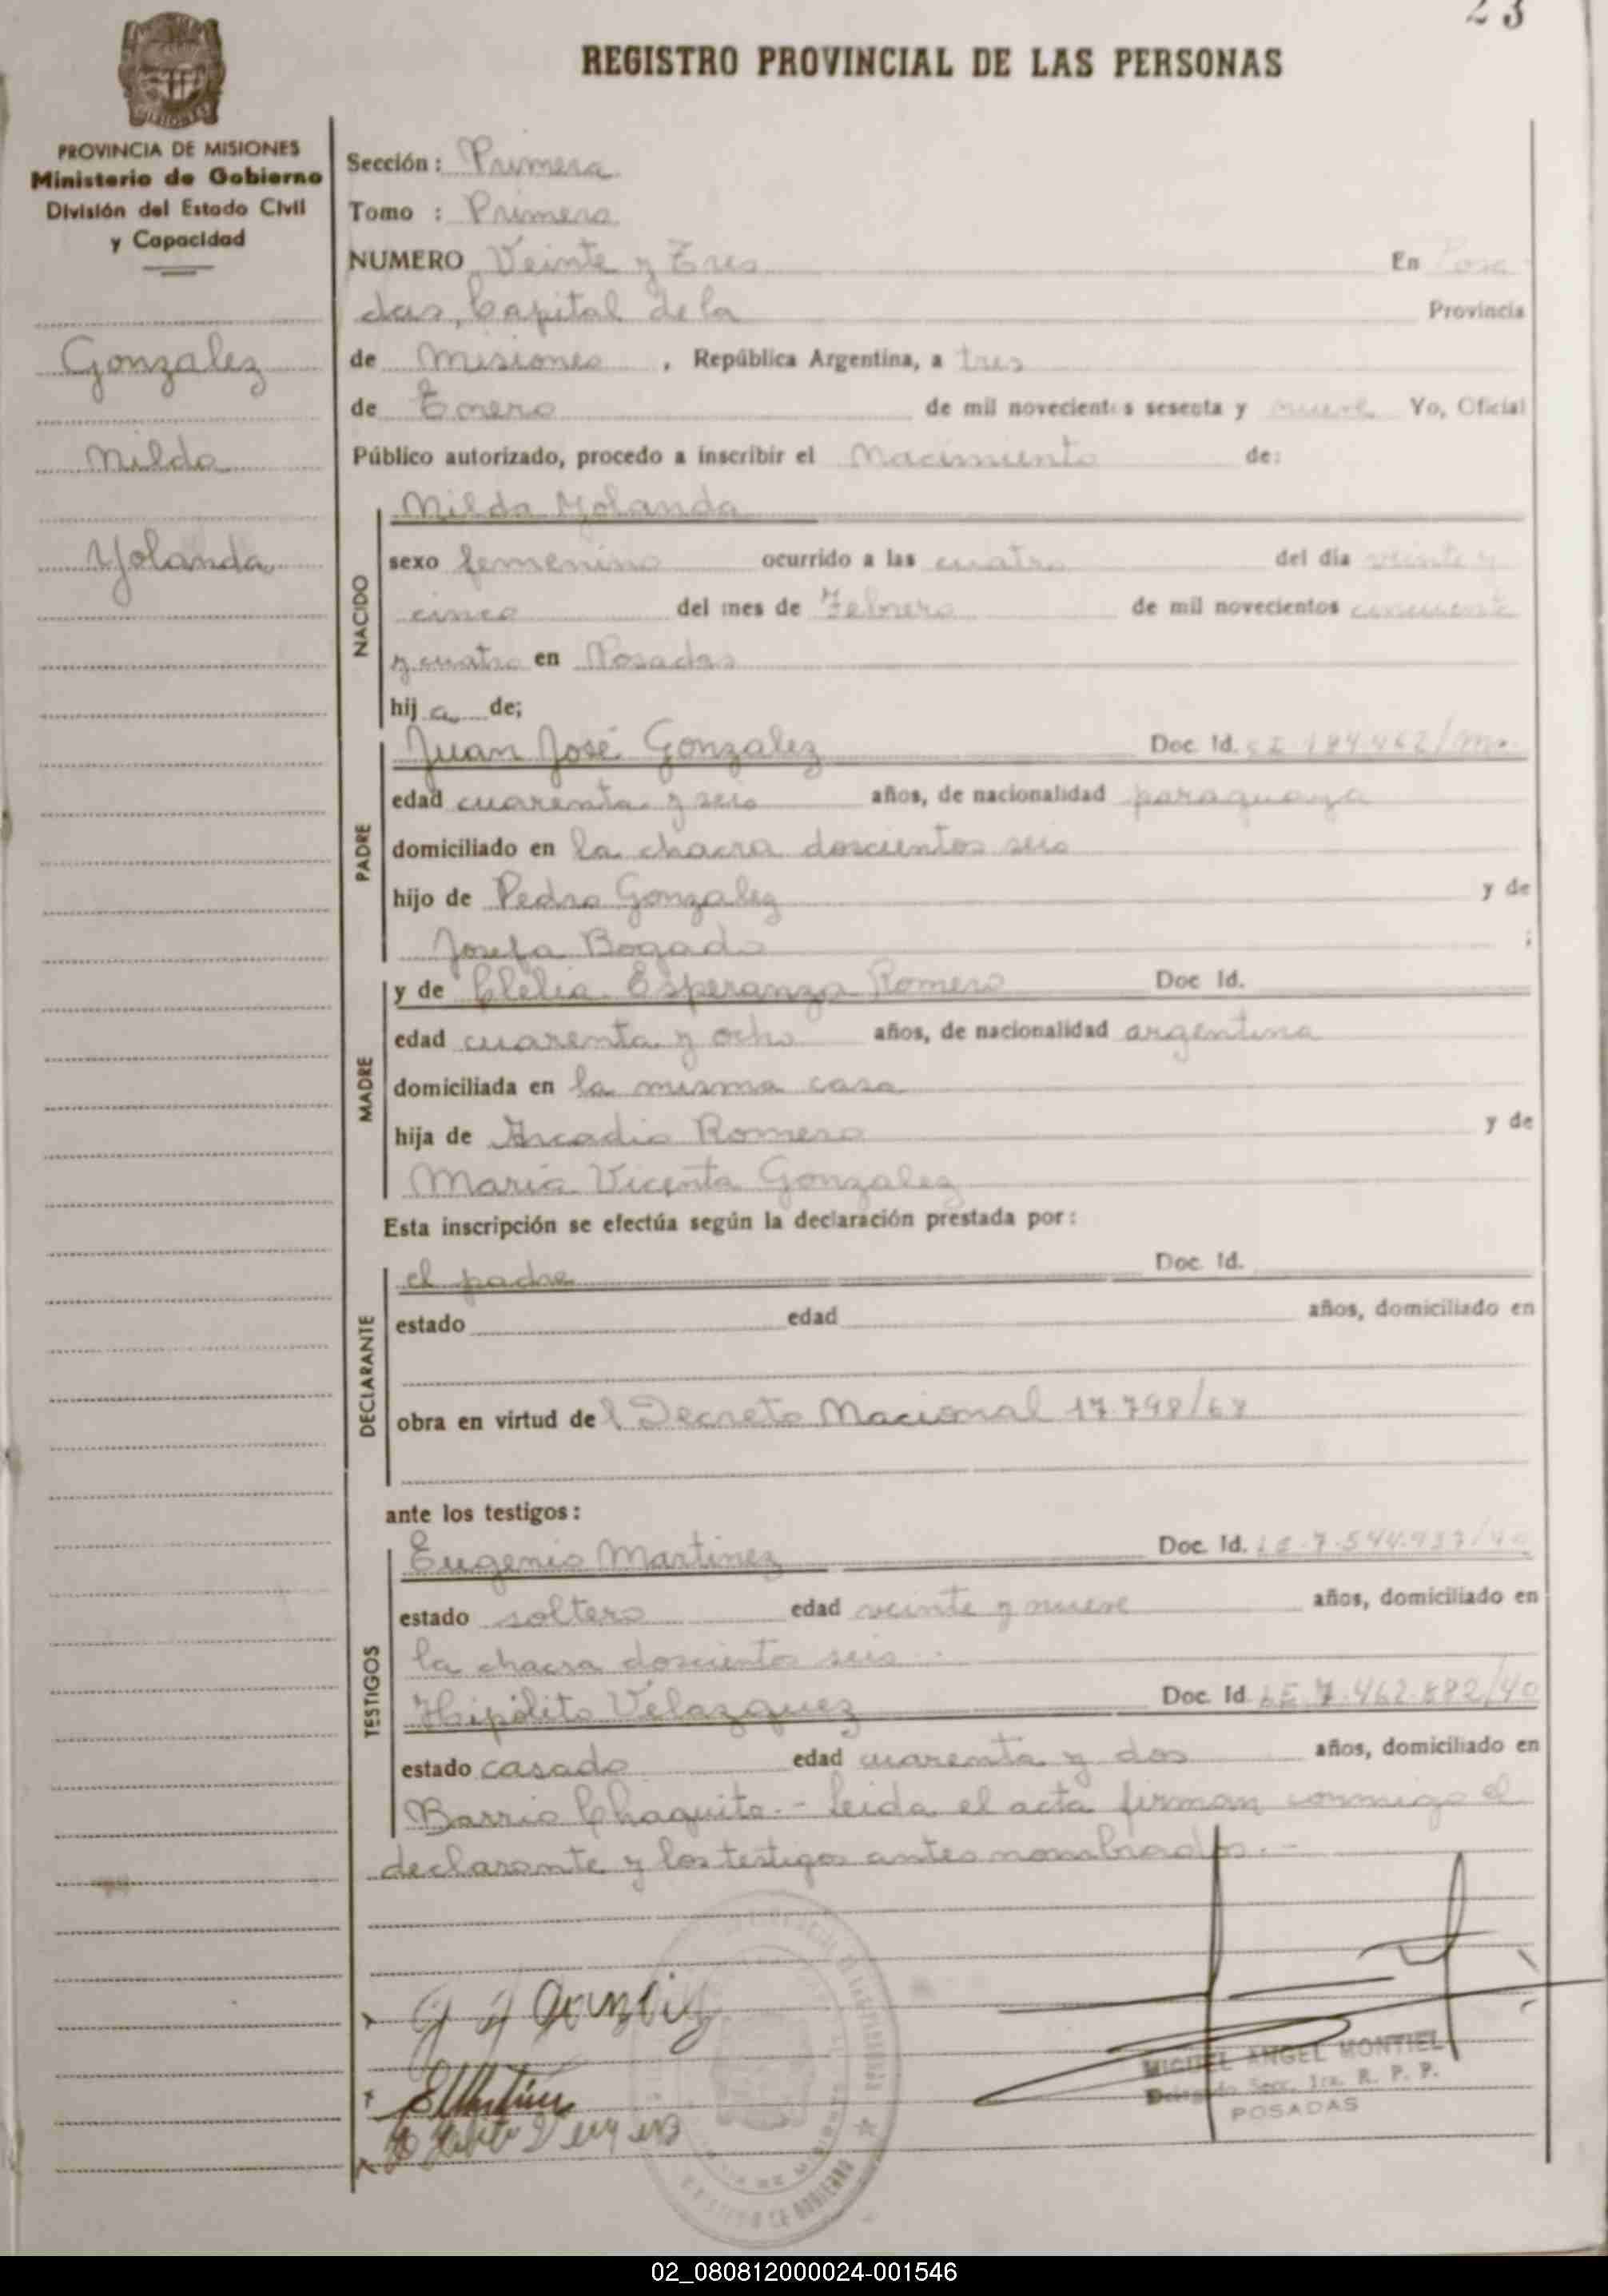 23
REGISTRO PROVINCIAL DE LAS PERSONAS
PROVINCIA DE MISIONES
Ministerio de Gobierno
División del Estado Civil
y Capacidad
Gonzalez
Nilda
Yolanda
Sección: Primera
Tomo : Primero
NUMERO Veinte y Tres En Posa
das, Capital de la Provincia
de Misiones, República Argentina, a tres
de Enero de mil novecientos sesenta y nueve Yo, Oficial
Público autorizado, procedo a inscribir el Nacimiento de:
NACIDO
Nilda Yolanda
sexo femenino ocurrido a las cuatro del día veinte y
cinco del mes de Febrero de mil novecientos cincuenta
y cuatro en Posadas
hij a de;
PADRE
Juan José Gonzalez Doc. Id. CI
edad cuarenta y seis años, de nacionalidad paraguaya
domiciliado en la chacra doscientos seis
hijo de Pedro Gonzalez y de
Josefa Bogado ;
MADRE
y de Clelia Esperanza Romero Doc Id.
edad cuarenta y ocho años, de nacionalidad argentina
domiciliada en la misma casa
hija de Arcadio Romero y de
María Vicenta Gonzalez
Esta inscripción se efectúa según la declaración prestada por:
DECLARANTE
el padre Doc. Id.
estado edad años, domiciliado en
obra en virtud del Decreto Nacional 17.798/68
ante los testigos:
TESTIGOS
Eugenio Martinez Doc. Id. LE
estado soltero edad veinte y nueve años, domiciliado en
la chacra doscientos seis
Hipólito Velazquez Doc. Id LE 7.462.882/40
estado casado edad cuarenta y dos años, domiciliado en
Barrio Chaquito.- leida el acta firman conmigo el
declarante y los testigos antes nombrados.-
J J Gonzalez
EMartinez
MIGUEL ANGEL MONTIEL
Delegado Secc. 1ra. R. P. P.
POSADAS
02_080812000024-001546